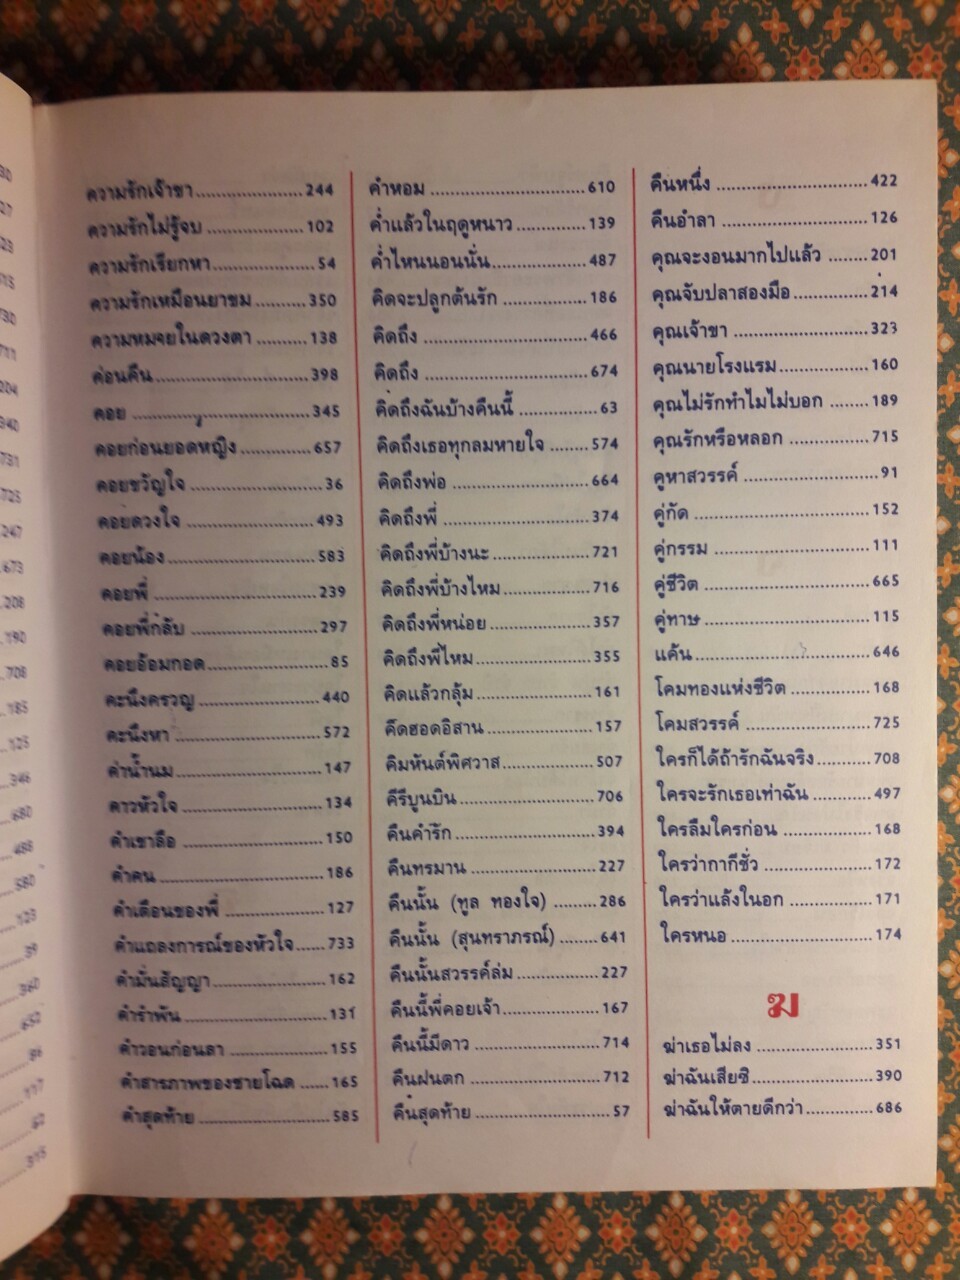 ความรักเจ้าขา 244
ความรักไม่รู้จบ 102
ความรักเรียกหา 54
ความรักเหมือนยาขม 350
ความหมายในดวงตา 138
ค่อนคืน 398
คอย 345
คอยก่อนยอดหญิง 657
คอยขวัญใจ 36
คอยดวงใจ 493
คอยน้อง 583
คอยพี่ 239
คอยพี่กลับ 297
คอยอ้อมกอด 85
คะนึงครวญ 440
คะนึงหา 572
ค่าน้ำนม 147
คาวหัวใจ 134
คำเขาลือ 150
คำคน 186
คำเตือนของพี่ 127
คำแถลงการณ์ของหัวใจ 733
คำมั่นสัญญา 162
คำรำพัน 131
คำวอนก่อนลา 155
คำสารภาพของชายโฉด 165
คำสุดท้าย 585
คำหอม 610
ค่ำแล้วในฤดูหนาว 139
ค่ำไหนนอนนั่น 487
คิดจะปลูกต้นรัก 186
คิดถึง 466
คิดถึง 674
คิดถึงฉันบ้างคืนนี้ 63
คิดถึงเธอทุกลมหายใจ 574
คิดถึงพ่อ 664
คิดถึงพี่ 374
คิดถึงพี่บ้างนะ 721
คิดถึงพี่บ้างไหม 716
คิดถึงพี่หน่อย 357
คิดถึงพี่ไหม 355
คิดแล้วกลุ้ม 161
คึดฮอดอิสาน 157
คิมหันต์พิศวาส 507
คีรีบูนบิน 706
คืนคำรัก 394
คืนทรมาน 227
คืนนั้น (ทูล ทองใจ) 286
คืนนั้น (สุนทราภรณ์) 641
คืนนั้นสวรรค์ล่ม 227
คืนนี้พี่คอยเจ้า 167
คืนนี้มีดาว 714
คืนฝนตก 712
คืนสุดท้าย 57
คืนหนึ่ง 422
คืนอำลา 126
คุณจะงอนมากไปแล้ว 201
คุณจับปลาสองมือ 214
คุณเจ้าขา 323
คุณนายโรงแรม 160
คุณไม่รักทำไมไม่บอก 189
คุณรักหรือหลอก 715
คูหาสวรรค์ 91
คู่กัด 152
คู่กรรม 111
คู่ชีวิต 665
คู่ทาษ 115
แค้น 646
โคมทองแห่งชีวิต 168
โคมสวรรค์ 725
ใครก็ได้ถ้ารักฉันจริง 708
ใครจะรักเธอเท่าฉัน 497
ใครลืมใครก่อน 168
ใครว่ากากีชั่ว 172
ใครว่าแล้งในอก 171
ใครหนอ 174
ฆ
ฆ่าเธอไม่ลง 351
ฆ่าฉันเสียซิ 390
ฆ่าฉันให้ตายดีกว่า 686